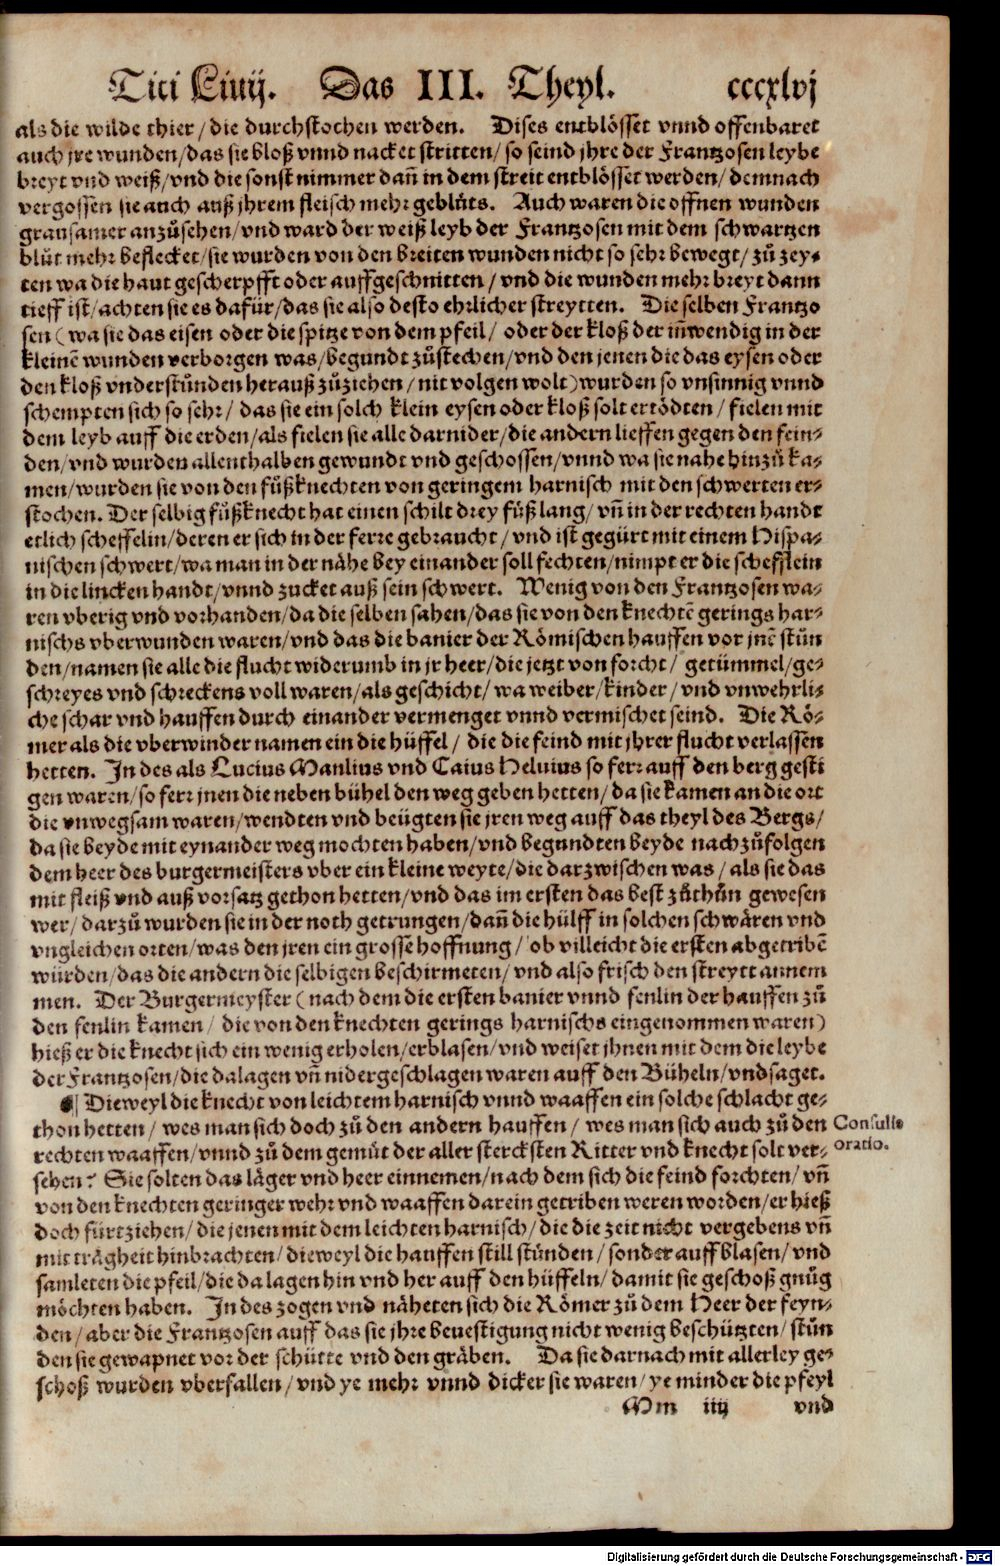 Titi Liuij. Das III. Theyl. cccxlvj
als die wilde thier / die durchstochen werden. Dises entblösset vnnd offenbaret
auch jre wunden / das sie bloß vnnd nacket stritten / so seind jhre der Frantzosen leybe
breyt vnd weiß / vnd die sonst nimmer dañ in dem streit entblösset werden / demnach
vergossen sie auch auß jhrem fleisch mehr geblůts. Auch waren die offnen wunden
grausamer anzůsehen / vnd ward der weiß leyb der Frantzosen mit dem schwartzen
blůt mehr beflecket / sie wurden von den breiten wunden nicht so sehr bewegt / zů zey⸗
ten wa die haut gescherpfft oder auffgeschnitten / vnd die wunden mehr breyt dann
tieff ist / achten sie es dafür / das sie also desto ehrlicher streytten. Die selben Frantzo
sen ( wa sie das eisen oder die spitze von dem pfeil / oder der kloß der iñwendig in der
kleinẽ wunden verborgen was / begundt zůstechen / vnd den jenen die das eysen oder
den kloß vnderstůnden herauß zůziehen / nit volgen wolt ) wurden so vnsinnig vnnd
schempten sich so sehr / das sie ein solch klein eysen oder kloß solt ertödten / fielen mit
dem leyb auff die erden / als fielen sie alle darnider / die andern lieffen gegen den fein⸗
den / vnd wurden allenthalben gewundt vnd geschossen / vnnd wa sie nahe hinzů ka⸗
men / wurden sie von den fůßknechten von geringem harnisch mit den schwerten er⸗
stochen. Der selbig fůßknecht hat einen schilt drey fůß lang / vñ in der rechten handt
etlich scheffelin / deren er sich in der ferre gebraucht / vnd ist gegürt mit einem Hispa⸗
nischen schwert / wa man in der nähe bey einander soll fechten / nimpt er die schefflein
in die lincken handt / vnnd zucket auß sein schwert. Wenig von den Frantzosen wa⸗
ren vberig vnd vorhanden / da die selben sahen / das sie von den knechtẽ gerings har⸗
nischs vberwunden waren / vnd das die banier der Römischen hauffen vor jnẽ stůn
den / namen sie alle die flucht widerumb in jr heer / die jetzt von forcht / getümmel / ge⸗
schreyes vnd schreckens voll waren / als geschicht / wa weiber / kinder / vnd vnwehrli⸗
che schar vnd hauffen durch einander vermenget vnnd vermischet seind. Die Rö⸗
mer als die vberwinder namen ein die hüffel / die die feind mit jhrer flucht verlassen
hetten. In des als Lucius Manlius vnd Caius Heluius so ferr auff den berg gesti
gen waren / so ferr jnen die neben bühel den weg geben hetten / da sie kamen an die ort
die vnwegsam waren / wendten vnd beügten sie jren weg auff das theyl des Bergs /
da sie beyde mit eynander weg mochten haben / vnd begundten beyde nachzůfolgen
dem heer des burgermeisters vber ein kleine weyte / die darzwischen was / als sie das
mit fleiß vnd auß vorsatz gethon hetten / vnd das im ersten das best zůthůn gewesen
wer / darzů wurden sie in der noth getrungen / dañ die hülff in solchen schwären vnd
vngleichen orten / was den jren ein grosse hoffnung / ob villeicht die ersten abgetribẽ
würden / das die andern die selbigen beschirmeten / vnd also frisch den streytt annem
men. Der Burgermeyster ( nach dem die ersten banier vnnd fenlin der hauffen zů
den fenlin kamen / die von den knechten gerings harnischs eingenommen waren )
hieß er die knecht sich ein wenig erholen / erblasen / vnd weiset jhnen mit dem die leybe
der Frantzosen / die da lagen vñ nidergeschlagen waren auff den Büheln / vnd saget.
¶ Dieweyl die knecht von leichtem harnisch vnnd waaffen ein solche schlacht ge⸗
thon hetten / wes man sich doch zů den andern hauffen / wes man sich auch zů den
rechten waaffen / vnnd zů dem gemüt der aller stercksten Ritter vnd knecht solt ver⸗
sehen? Sie solten das läger vnd heer einnemen / nach dem sich die feind forchten / vñ
von den knechten geringer wehr vnd waaffen darein getriben weren worden / er hieß
doch fürtziehen / die jenen mit dem leichten harnisch / die die zeit nicht vergebens vñ
mit trägheit hinbrachten / dieweyl die hauffen still stůnden / sonder auffblasen / vnd
samleten die pfeil / die da lagen hin vnd her auff den hüffeln / damit sie geschoß gnůg
möchten haben. In des zogen vnd näheten sich die Römer zů dem Heer der feyn⸗
den / aber die Frantzosen auff das sie jhre beuestigung nicht wenig beschützten / stůn
den sie gewapnet vor der schütte vnd den gräben. Da sie darnach mit allerley ge⸗
schoß wurden vberfallen / vnd ye mehr vnnd dicker sie waren / ye minder die pfeyl
Mm iiij vnd
Consulis
oratio.
Digitalisierung gefördert durch die Deutsche Forschungsgemeinschaft - DFG